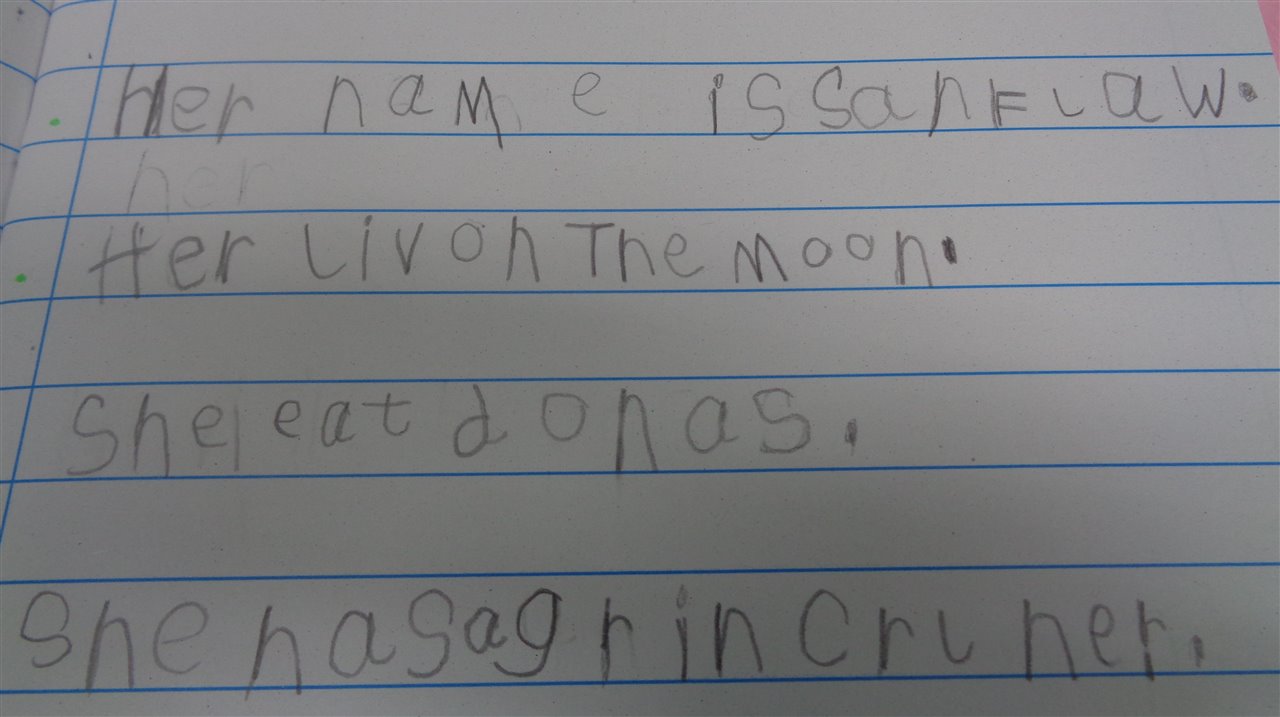 Her name is sanFlaw.
her
Her liv on The moon.
She eat donas.
She has a grin cruher.